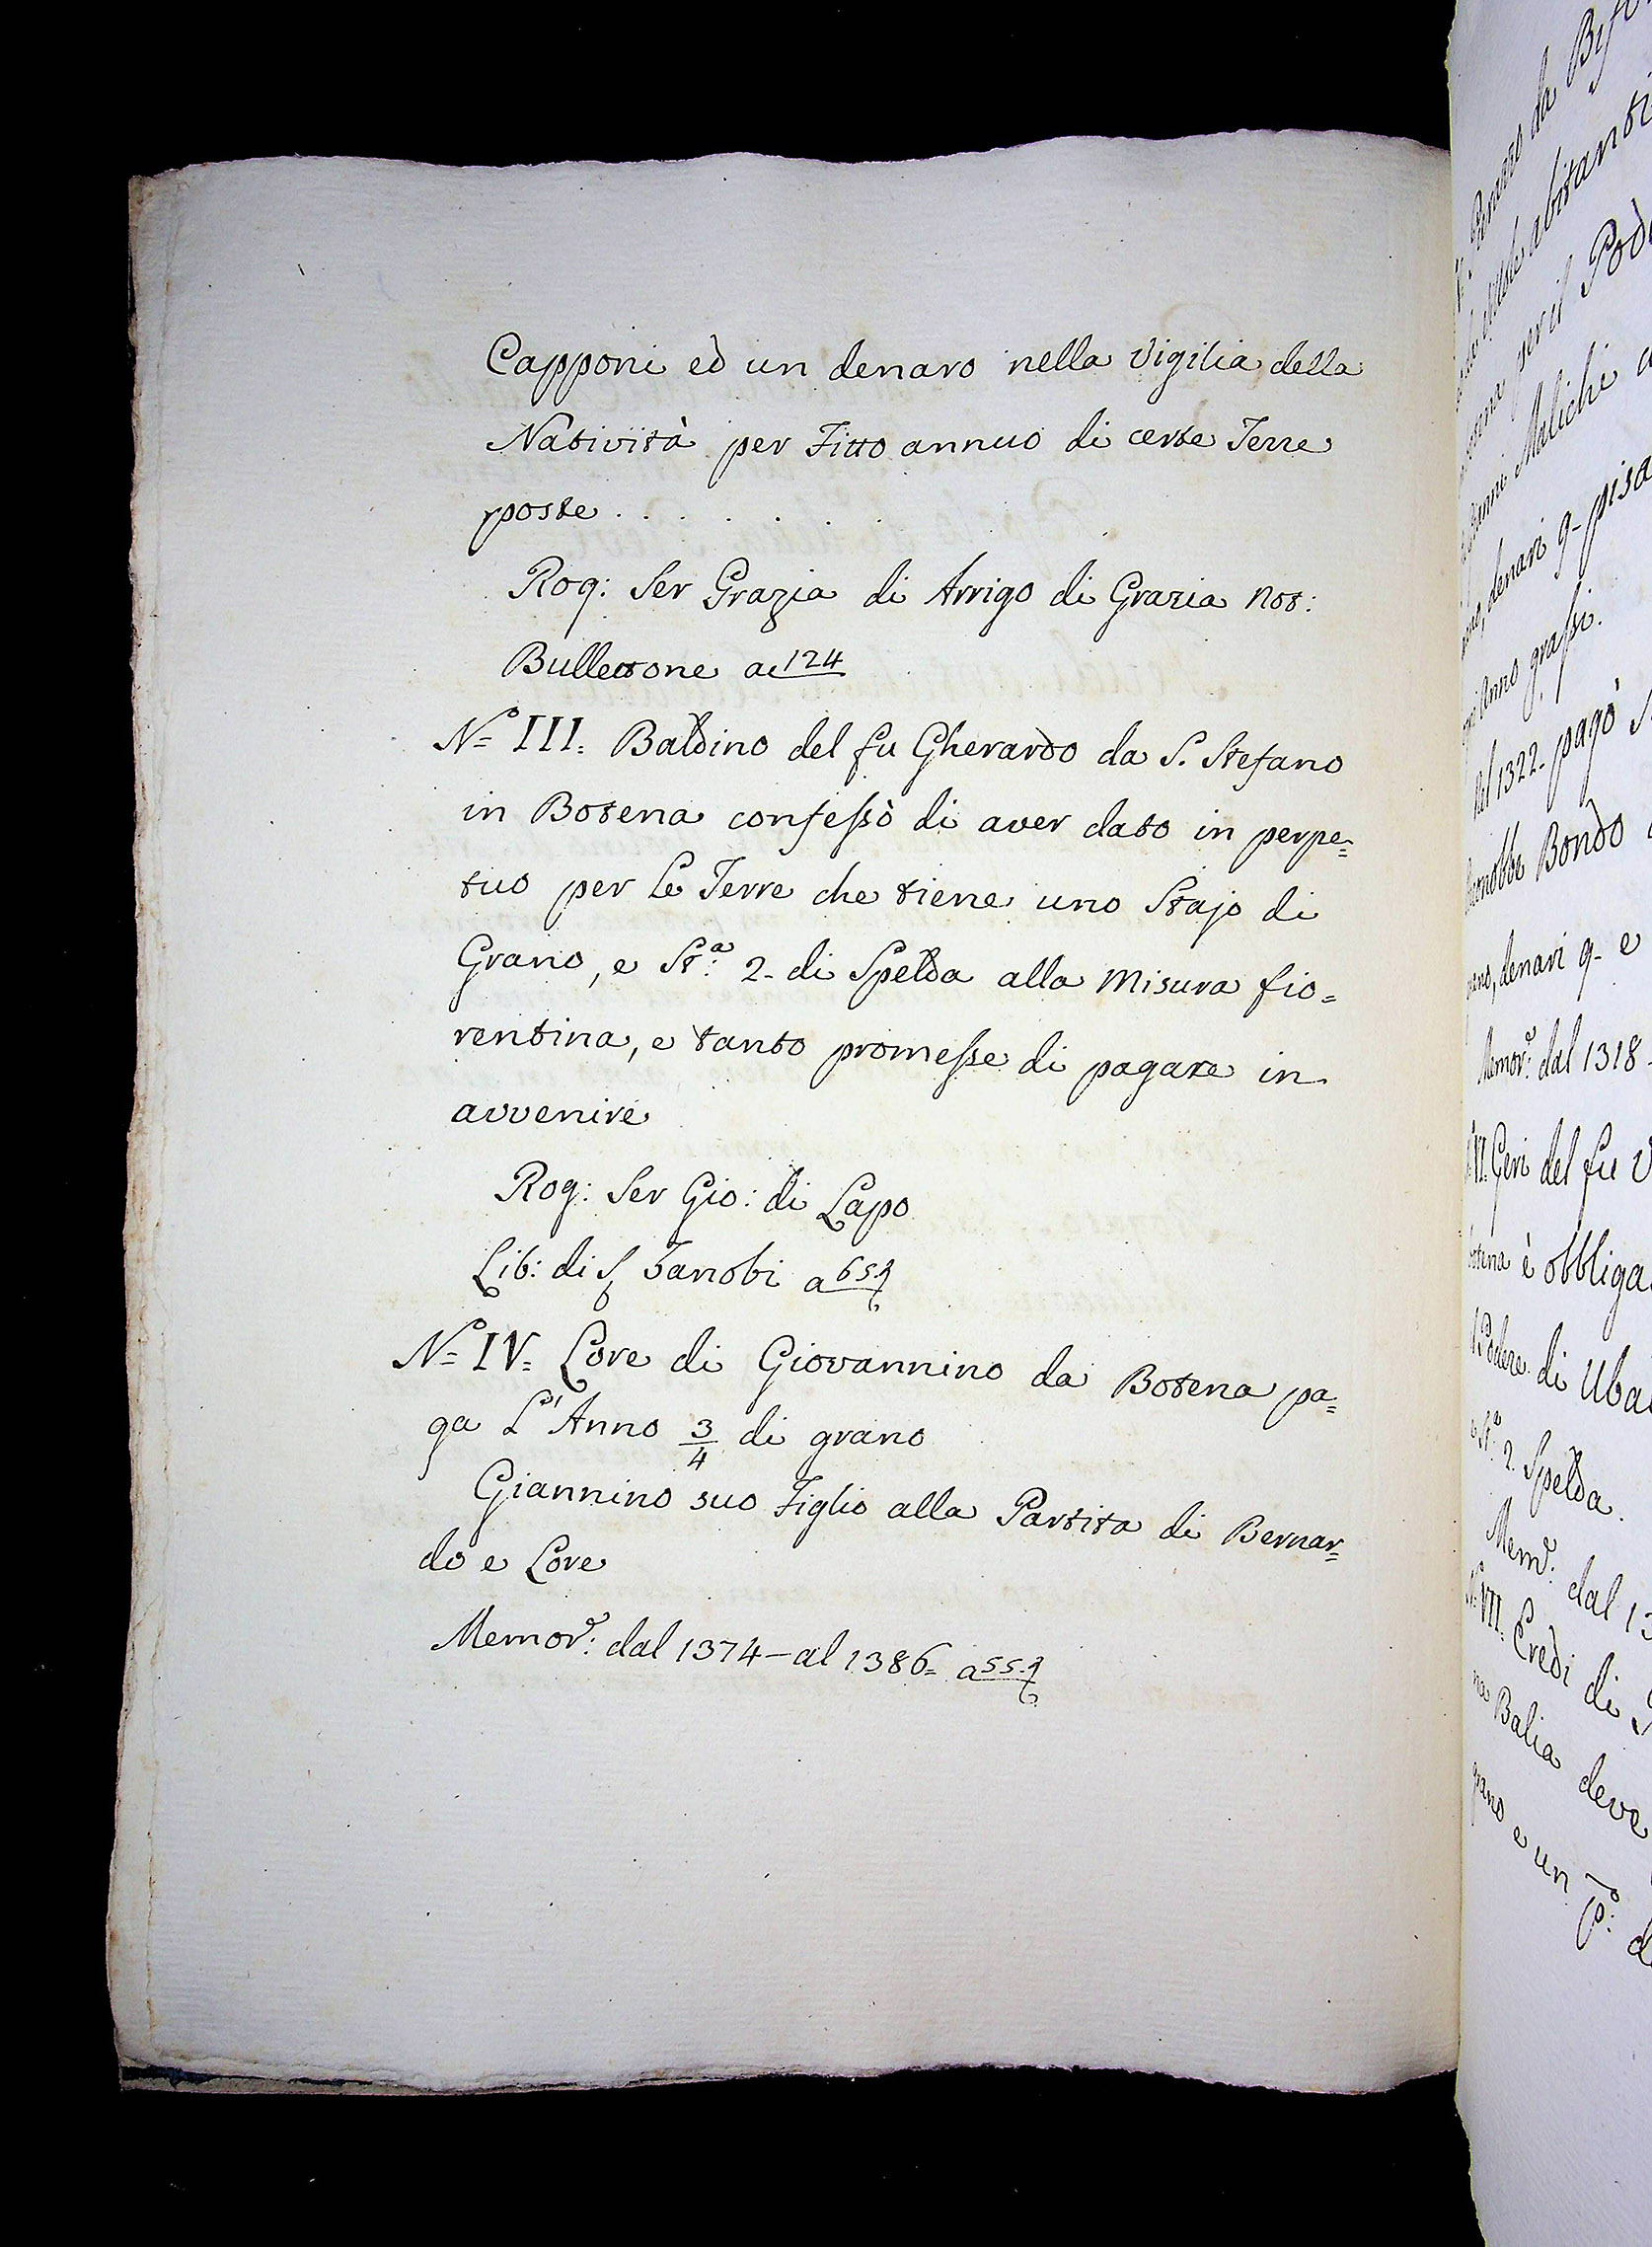 Capponi ed un denaro nella Vigilia della
Natività per Fitto annuo di certe Terre
poste . . . . . .
Rog: Ser Grazia di Arrigo di Grazia Not:
Bullettone a 124
Nº III. Baldino del fu Gherardo da S. Stefano
in Botena confessò di aver dato in perpe=
tuo per le Terre che tiene uno Stajo di
Grano, e Stª: 2- di Spelda alla Misura fio=
rentina, e tanto promesse di pagare in
avvenire
Rog: Ser Gio: di Lapo
Lib: di S Zanobi a 65
Nº IV= Lore di Giovannino da Botena pa=
ga L'Anno 3/4 di grano
Giannino suo Figlio alla Partita di Bernar=
do e Lore
Memor: dal 1374- al 1386= a 55
da
abitanti
per il
Maliche
denari 9- pisa
Anno grassi.
1322- pagò
Bondo
denari 9- e
Memor: dal 1318-
VI. Geri del fu
è obbliga
di Uba
2. Spelda.
Mem: dal 13
VII. Eredi di
Balia deve
e un